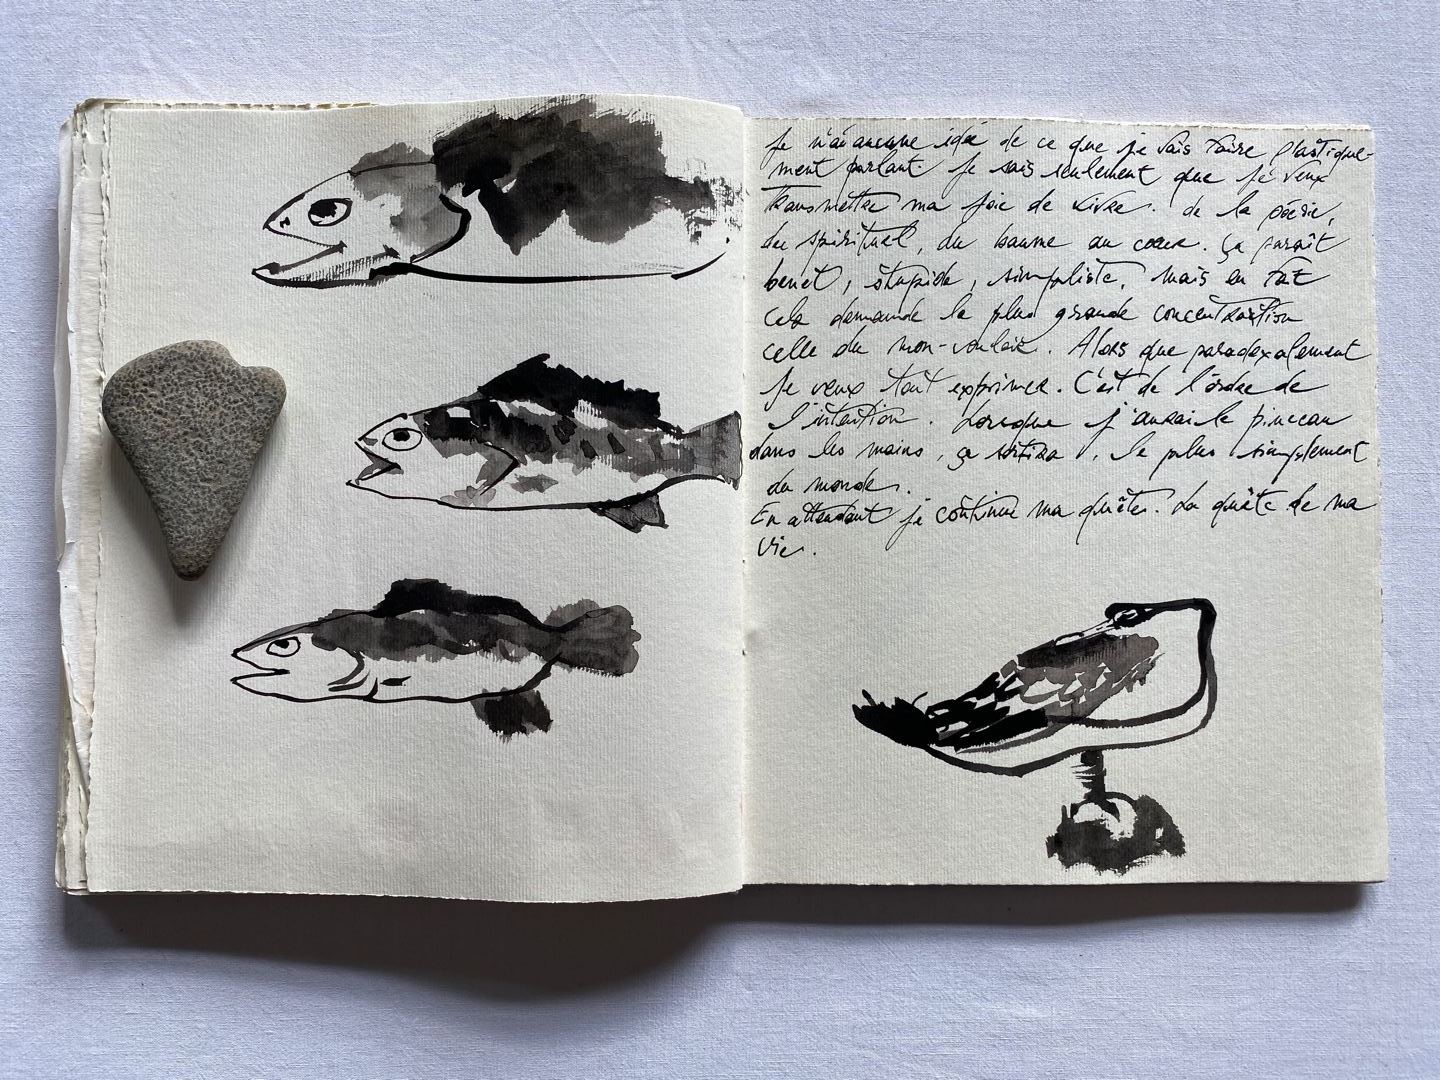 Je n'ai aucune idée de ce que je vais faire plastique-
ment parlant. Je sais seulement que je veux
transmettre ma joie de vivre. de la poésie,
du spirituel, du baume au cœur. ça paraît
benet, stupide, simpliste, mais en fait
cela demande la plus grande concentration
celle du non-vouloir. Alors que paradoxalement
je veux tout exprimer. C'est de l'ordre de
l'intention. Lorsque j'aurai le pinceau
dans les mains, ça sortira, le plus simplement
du monde.
En attendant je continue ma quête. La quête de ma
vie.